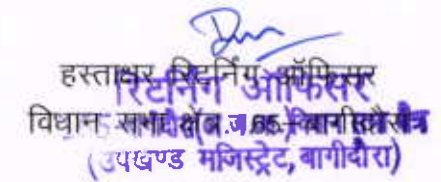 हस्ताक्षर रिटर्निंग ऑफिसर
रिटर्निंग ऑफिसर
विधान सभा क्षेत्र
(उपखण्ड मजिस्ट्रेट, बागीदौरा)